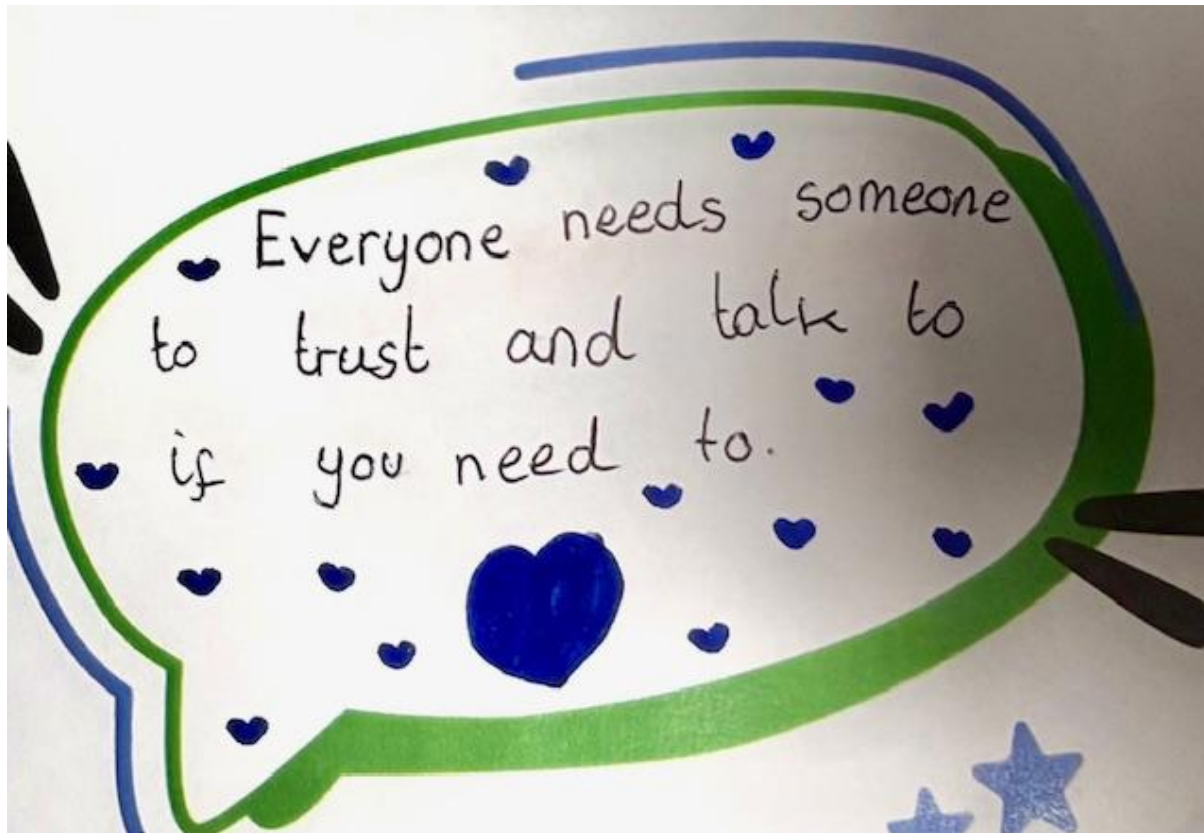 Everyone needs someone
to trust and talk to
if you need to.